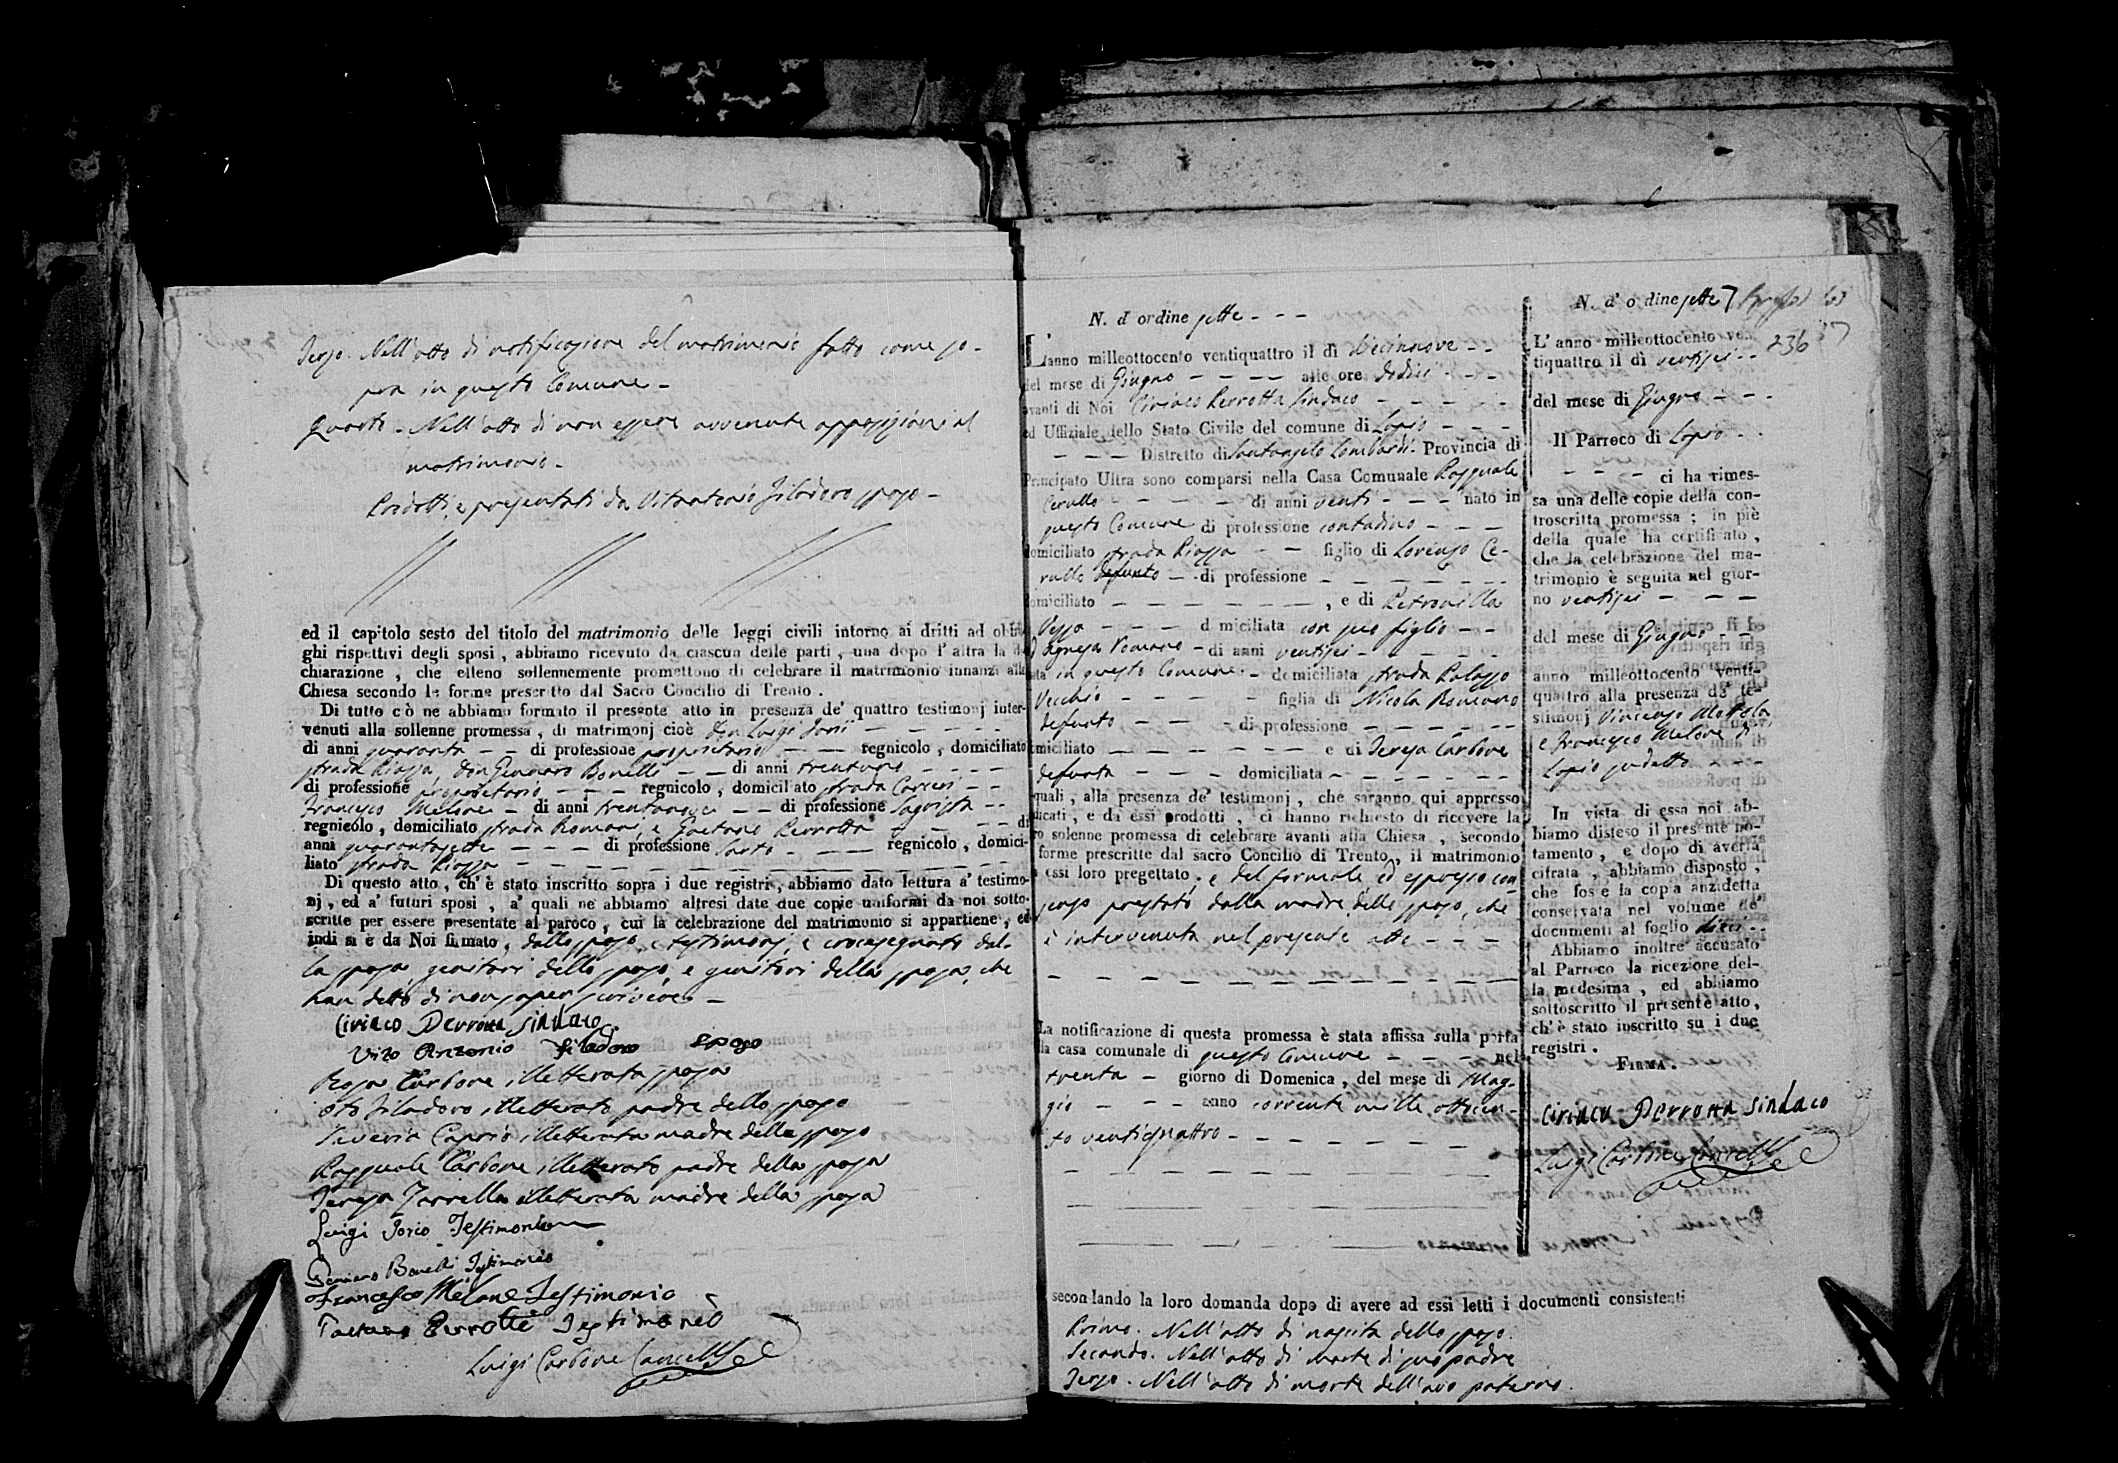 Terzo. Nell'atto di notificazione del matrimonio fatto come so-
pra in questo Comune -
Quarto - Nell'atto di non essere avvenute opposizioni al
matrimonio -
Prodotti, e presentati da Vitantonio Filadoro sposo -
ed il capitolo sesto del titolo del matrimonio delle leggi civili intorno ai dritti ad obbli-
ghi rispettivi degli sposi, abbiamo ricevuto da ciascun delle parti, una dopo l'altra la di
chiarazione, che elleno sollennemente promettono di celebrare il matrimonio innanzi alla
Chiesa secondo le forme prescritto dal Sacro Concilio di Trento.
Di tutto ciò ne abbiamo formato il presente atto in presenza de' quattro testimonj inter-
venuti alla sollenne promessa, di matrimonj cioè Don Luigi Iorii - - - - -
di anni quaranta - - di professione proprietario - - - regnicolo, domiciliato
strada Piazza, Don Gennaro Bonelli - - di anni trentuno - - - -
di professione proprietario - - - regnicolo, domiciliato strada Carceri - -
Francesco Melone - di anni trentanove - - di professione Sagrista - -
regnicolo, domiciliato strada Romani, e Gaetano Perrotta - - - - di
anni quarantasette - - - di professione Sarto - - - regnicolo, domici-
liato strada Piazza - - - - - - - - - - -
Di questo atto, ch' è stato inscritto sopra i due registri, abbiamo dato lettura a' testimo-
nj, ed a' futuri sposi, a' quali ne abbiamo altresi date due copie uniformi da noi sotto-
scritte per essere presentate al paroco, cui la celebrazione del matrimonio si appartiene, ed
indi si è da Noi firmato, dallo sposo, e testimonj, e crocesegnato dal-
la sposa genitori dello sposo, e genitori della sposa, che
han detto di non saper scrivere -
Ciriaco Perrotta Sindaco
Vito Antonio Filadoro Sposo
Rosa Carbone illetterata sposa
Oto Filadoro illetterato padre dello sposo
Severia Caprio illetterata madre dello sposo
Pasquale Carbone illetterato padre della sposa
Teresa Zarrella illetterata madre della sposa
Luigi Iorio Testimonio
Gennaro Bonelli Testimonio
Francesco Melone Testimonio
Gaetano Perrotta Testimoneo
Luigi Carbone Cancelle
N. d'ordine sette - - -
L'anno milleottocento ventiquattro il di diecinnove - -
del mese di Giugno - - - - alle ore dodici - - -
avanti di Noi Ciriaco Perrotta Sindaco - - - - -
ed Uffiziale dello Stato Civile del comune di Lapio - - -
- - - Distretto di Santangelo Lombardi. Provincia di
Principato Ultra sono comparsi nella Casa Comunale Pasquale
Cerullo - - - - - di anni venti - - - - nato in
questo Comune di professione contadino - - -
domiciliato strada Piazza - - figlio di Lorenzo Ce-
rullo defunto - di professione - - - - - - -
domiciliato - - - - - - -, e di Petronilla
- - - - domiciliata con suo figlio - -
Agnesa Romano - di anni ventisei - - - - -
nata in questo Comune - domiciliata strada Palazzo
Vecchio - - - - - figlia di Nicola Romano
defunto - - - - di professione - - - - - -
domiciliato - - - - - - e di Teresa Carbone
defunta - - - - domiciliata - - - - - -
quali, alla presenza de' testimonj, che saranno qui appresso
dicati, e da essi prodotti, ci hanno richiesto di ricevere la
ro solenne promessa di celebrare avanti alla Chiesa, secondo
forme prescritte dal sacro Concilio di Trento, il matrimonio
essi loro pregettato, e del formale ed espresso con-
senso prestato dalla madre dello sposo, che
è intervenuta nel presente atto - - - -
La notificazione di questa promessa è stata affissa sulla porta
la casa comunale di questo Comune - - - - nel
trenta - giorno di Domenica, del mese di Mag-
gio - - - anno corrente mille ottocen-
to ventiquattro - - - - - - -
secondando la loro domanda dopo di avere ad essi letti i documenti consistenti
Primo. Nell'atto di nascita dello sposo.
Secondo. Nell'atto di morte di suo padre
Terzo. Nell'atto di morte dell'avo paterno.
N. d' o dine sette
236
L' anno milleottocento ven-
tiquattro il di ventisei - -
del mese di Giugno - - -
Il Parroco di Lapio - -
- - - ci ha rimes-
sa una delle copie della con-
troscritta promessa; in piè
della quale ha certificato,
che la celebrazione del ma-
trimonio è seguita nel gior-
no ventisei - - -
del mese di Giugno - -
anno milleottocento venti-
quattro alla presenza de' te-
stimonj Vincenzo
e Francesco Melone di
Lapio sudetto - - -
In vista di essa noi ab-
biamo disteso il presente no-
tamento, e dopo di averla
cifrata, abbiamo disposto,
che fosse la copia anzidetta
conservata nel volume de'
documenti al foglio dieci - -
Abbiamo inoltre accusato
al Parroco la ricezione del-
la medesima, ed abbiamo
sottoscritto il presente atto,
ch' è stato inscritto su i due
registri.
FIRMA.
Ciriaco Perrotta Sindaco
Luigi Carbone Cancelle